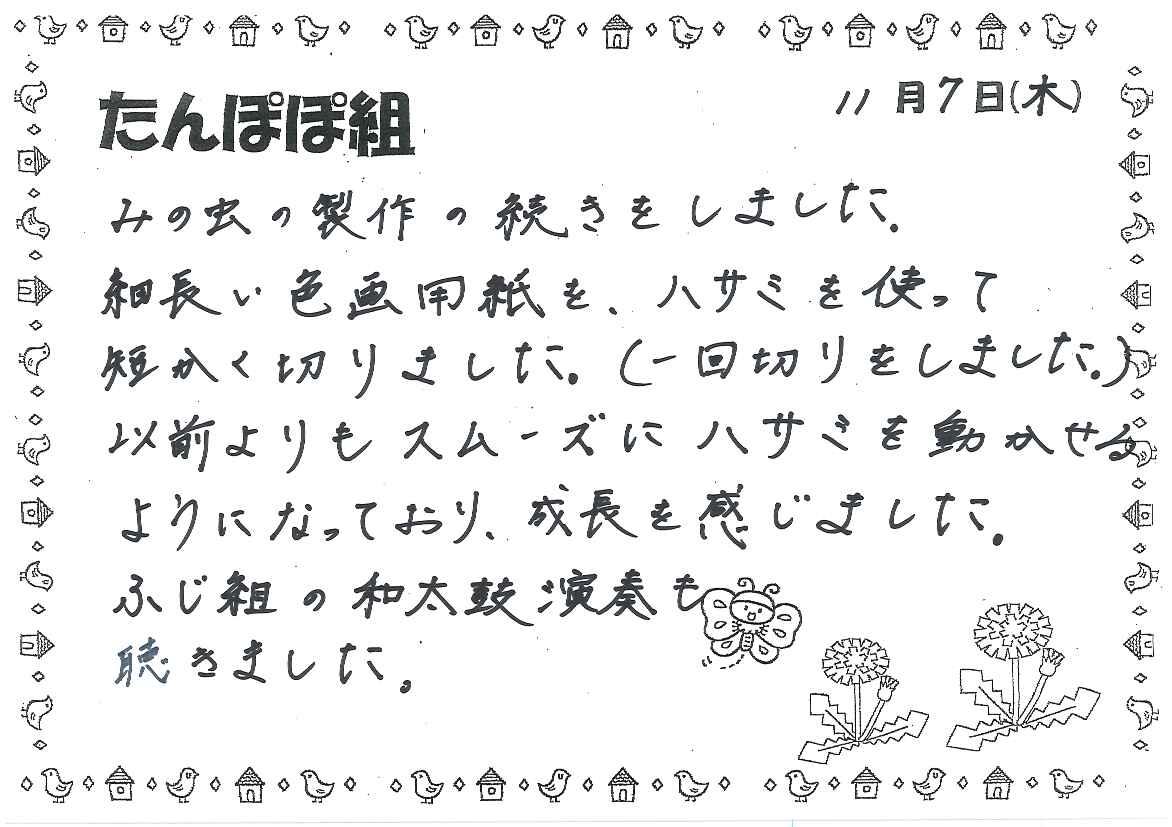 たんぽぽ組
11月7日(木)
みの虫の製作の続きをしました。
細長い色画用紙を、ハサミを使って
短かく切りました。(一回切りをしました。)
以前よりもスムーズにハサミを動かせる
ようになっており、成長を感じました。
ふじ組の和太鼓演奏も
聴きました。